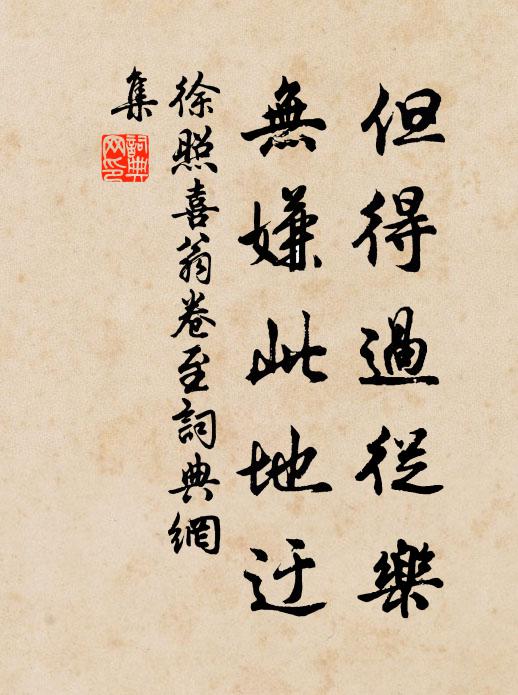 但得過從樂
無嫌此地迂
徐照喜翁卷至詞典網
集
詞典
网印